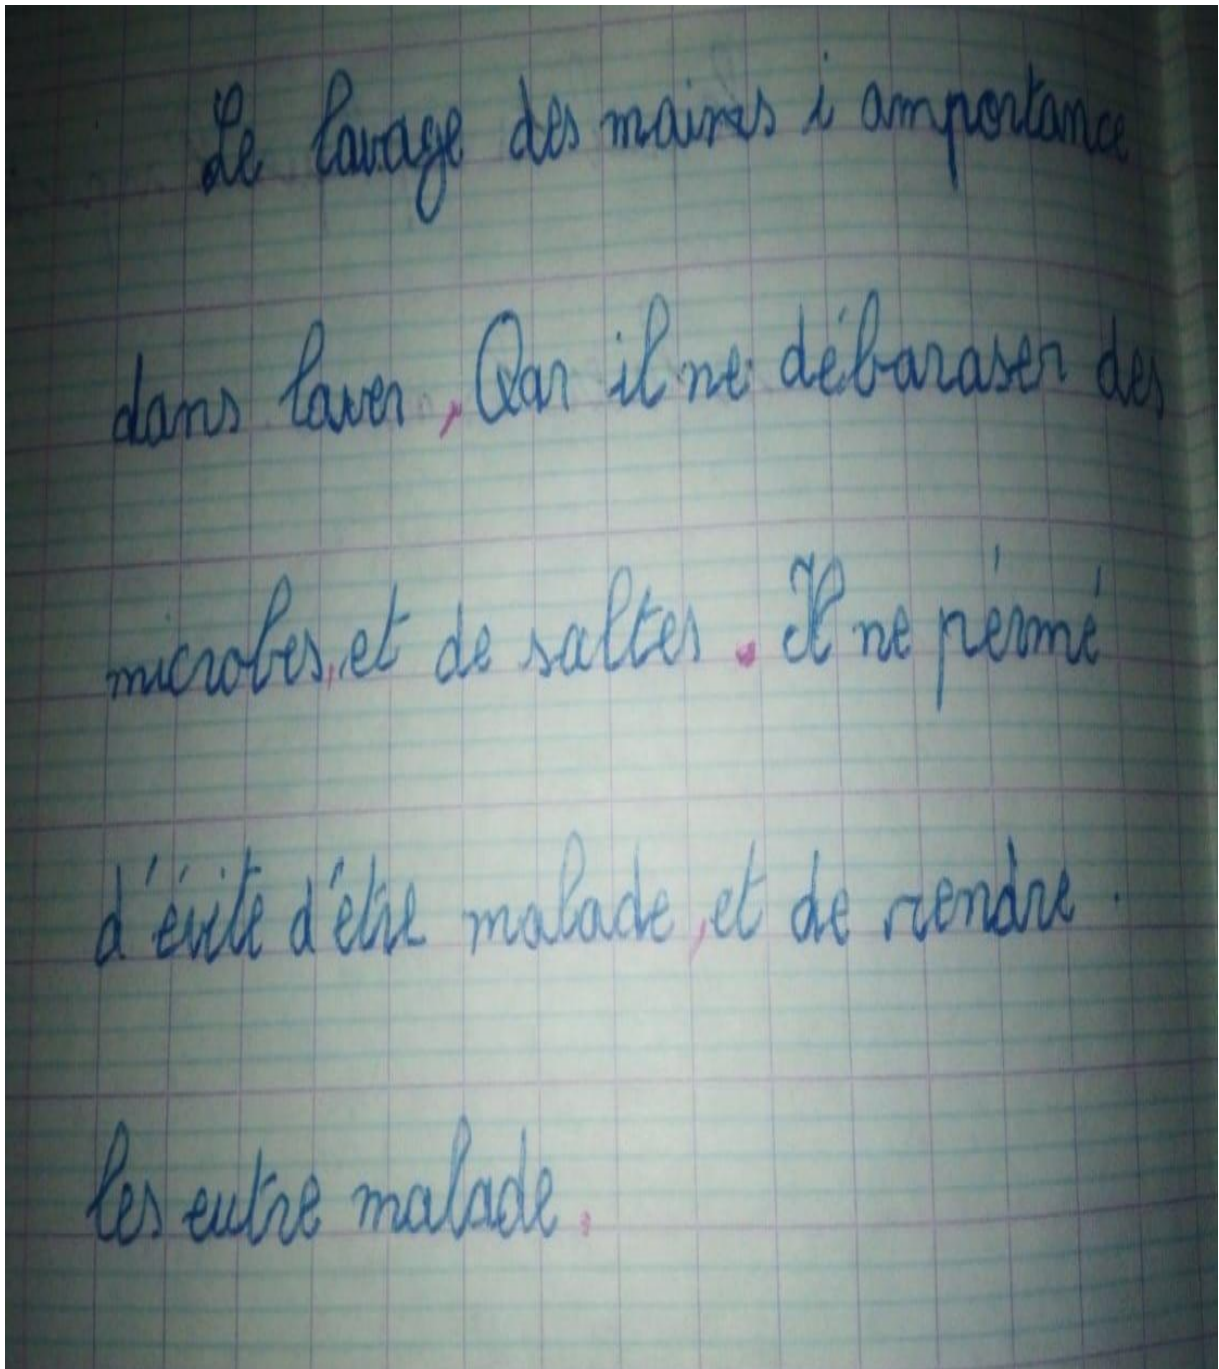 Le lavage des mains i amportance
dans laver, Qar il ne débaraser des
microbes, et de saltes. Il ne pérmé
d'évite d'être malade, et de rendre.
les eutre malade.